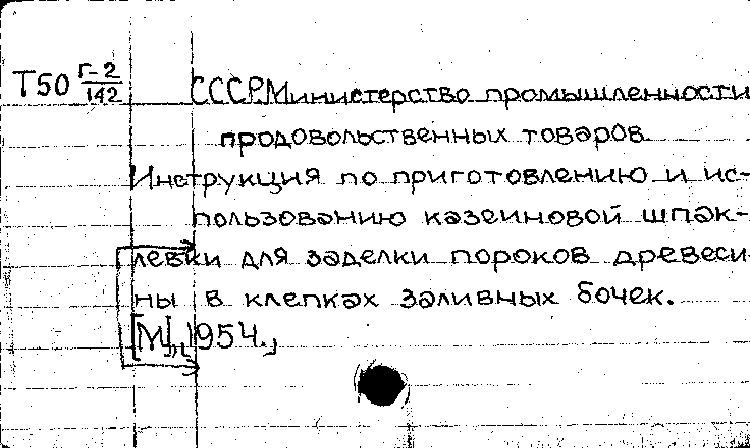 Т50 Г-2/142 СССР. Министерство промышленности
продовольственных товаров.
Инструкция по приготовлению и ис-
пользованию казеиновой шпак-
левки для заделки пороков древеси
ны в клепках заливных бочек.
[М], 1954.